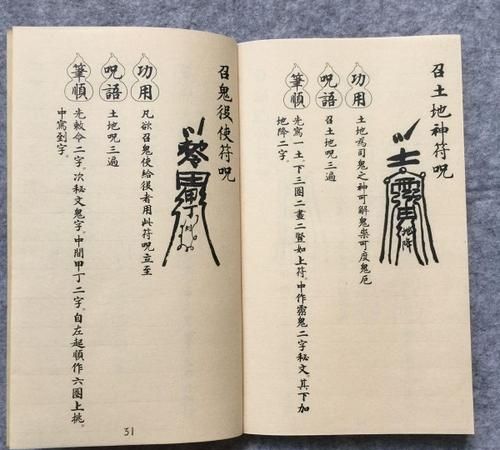 召土地神符呪
功用
土地為司鬼之神可解鬼祟可度鬼厄
呪語
召土地呪三遍
筆順
先寫一土。下三圈二畫二豎如上符。中作靈鬼二字秘文。其下加
地降二字。
召鬼役使符呪
功用
凡欲召鬼使給役者用此符呪立至
呪語
土地呪三遍
筆順
先敕令二字。次秘文鬼字。中間甲丁二字。自左起順作六圈上挑。
中寫到字。
31